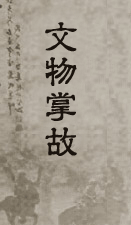 文物掌故